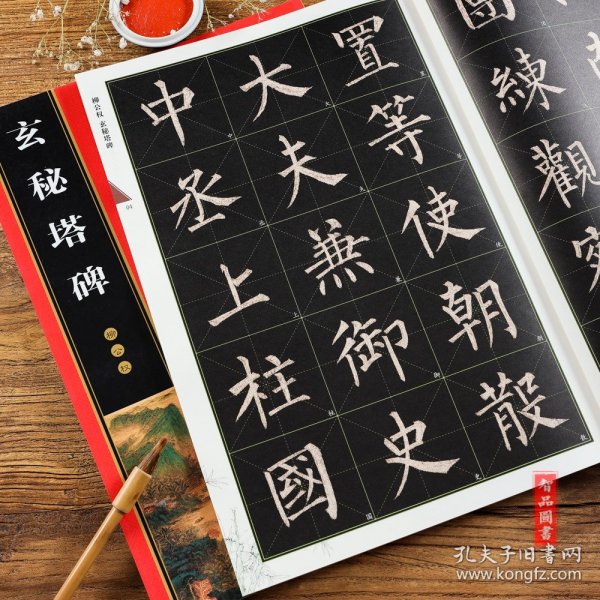 玄秘塔碑
柳公权
柳公权 玄秘塔碑
04
團練觀察
置等使朝散
大夫兼御史
中丞上柱國
智品圖書
孔夫子旧书网
www.kongfz.com